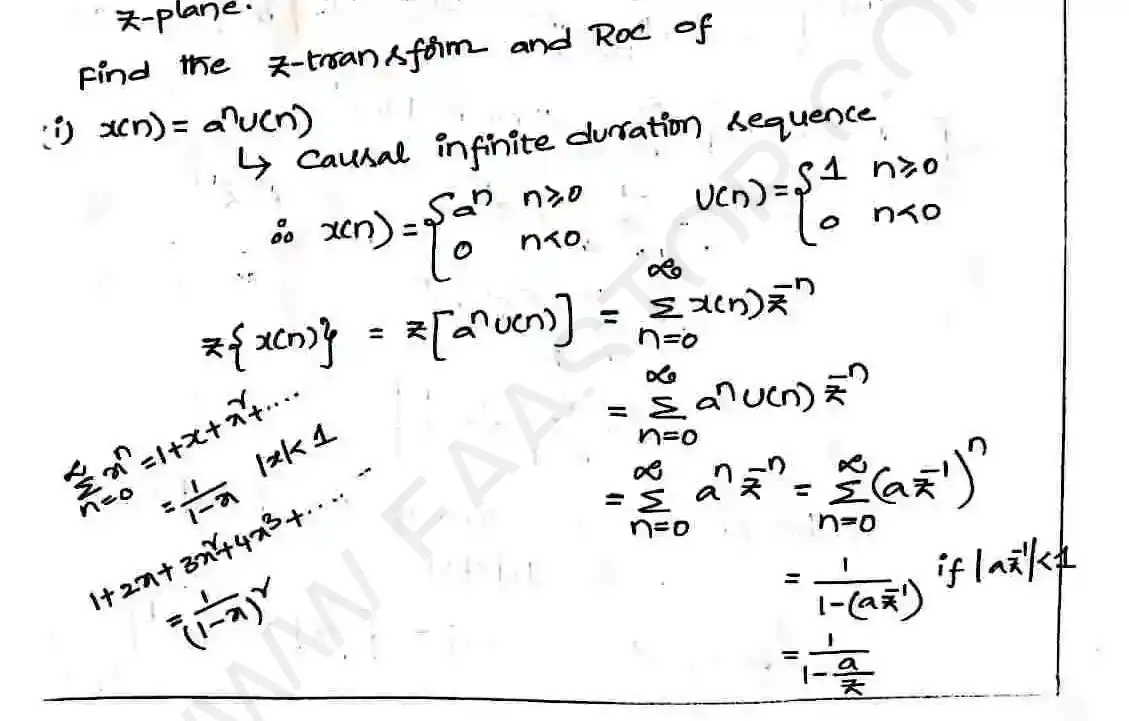 z-plane.
Find the z-transform and Roc of
i) x(n) = aⁿu(n)
↳ causal infinite duration sequence
∴ x(n) = { aⁿ n≥0 u(n) = { 1 n≥0
0 n<0. 0 n<0
z{x(n)} = z[aⁿu(n)] = ∞Σn=0 x(n) z⁻ⁿ
= ∞Σn=0 aⁿ u(n) z⁻ⁿ
= ∞Σn=0 aⁿ z⁻ⁿ = ∞Σn=0 (az⁻¹)ⁿ
= 1/(1-(az⁻¹)) if |az⁻¹|<1
= 1/(1-a/z)
∞Σn=0 xⁿ = 1+x+x²+....
= 1/(1-x) |x|<1
1+2x+3x²+4x³+....
= 1/(1-x)²
WWW.FAASTOP.CO